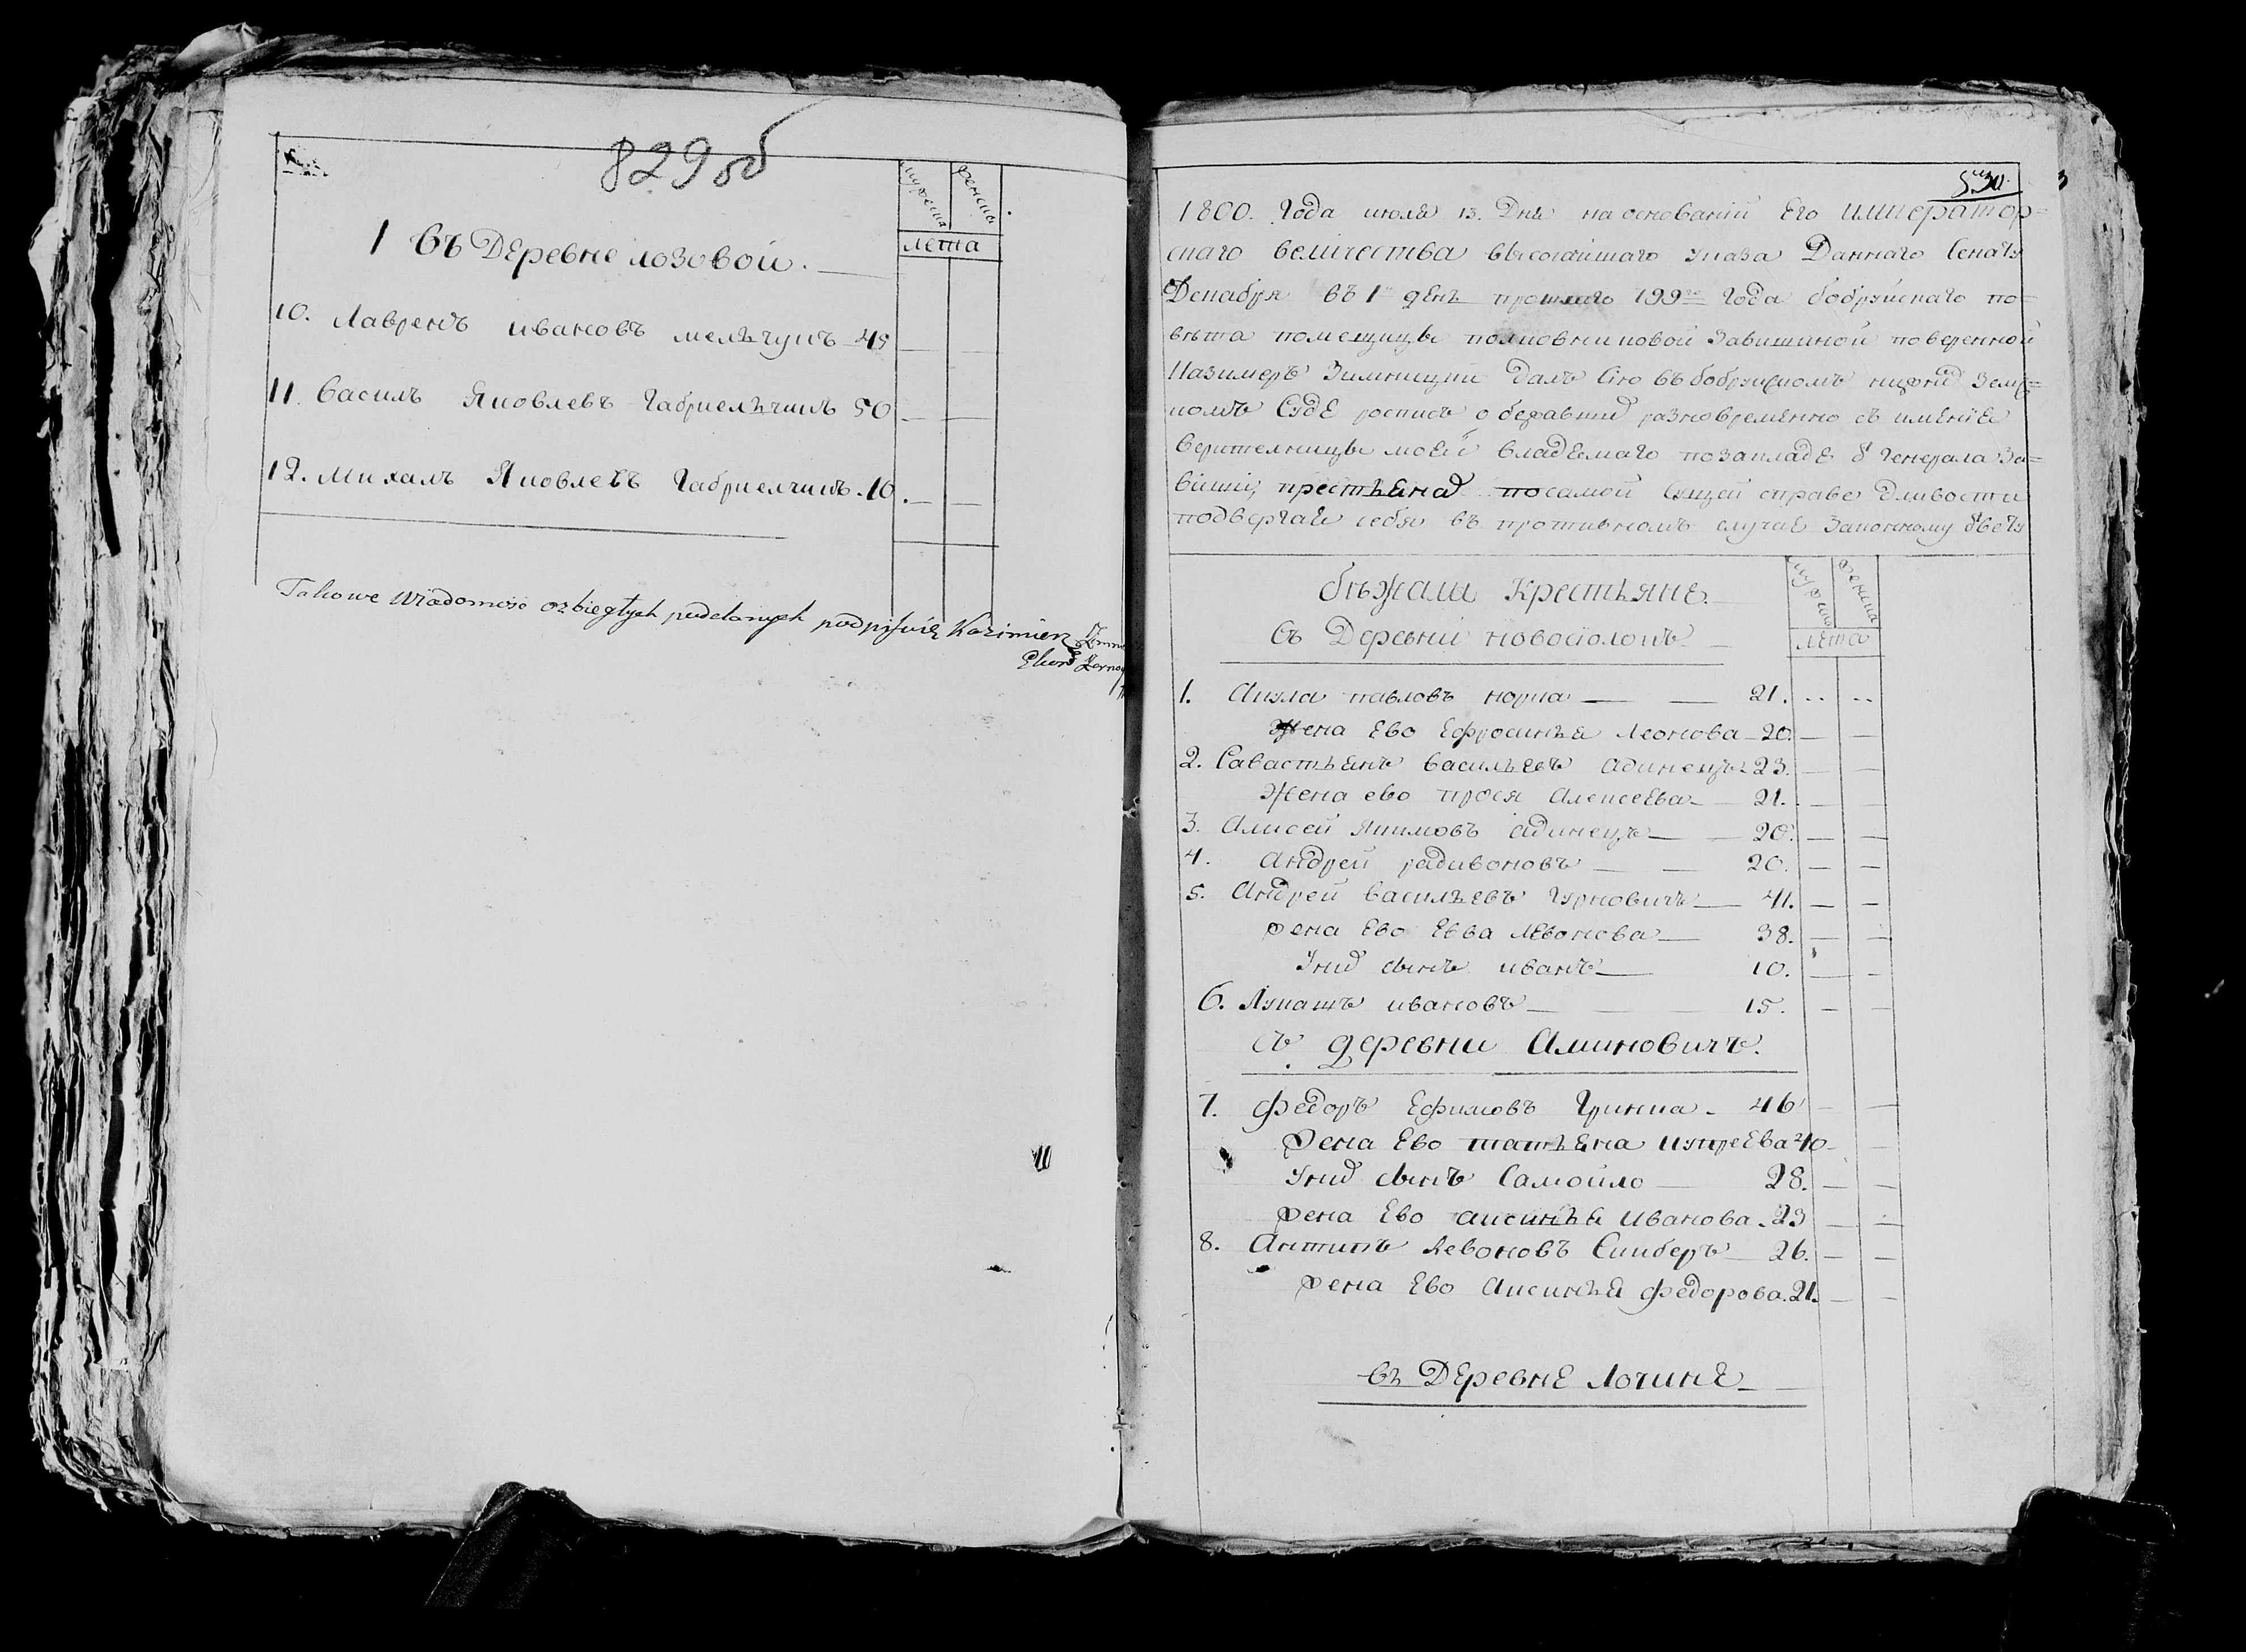 829 об
мужеска
женска
лета
1 Въ Деревне лозовой.
10. Лавренъ ивановъ мельчукъ 45
11. Василъ Яковлевъ Габриелъчикъ 50
12. Михалъ Яковлевъ Габриелчикъ. 10.
Takowe Wiadomość o zbiegłych poddanych podpisuię Kazimierz
830.
1800. Года июля 13. Дня на оснований Его император=
скаго величества высочайшаго указа Даннаго Сенату
Декабря въ 1 день прошлаго 199го Года бобруйскаго по=
вѣта помещицы полковниковой Завишиной поверенной
Казимеръ Зимницки Далъ Сию въ бобруйскомъ нижнемъ Земс=
комъ Суде роспись о бежавшихъ разновременно съ имения
верителницы моей владемаго позакладе отъ Генерала За=
виши, крестьянахъ посамой сущей справедливости
подвергая себя въ противномъ случае Законному ответу
бѣжали крестьяне.
съ Деревни новосиолокъ
мужеска
женска
лета
1. Акула павловъ корка 21.
Жена Ево Ефросинья Леонова 20.
2. Савастьянъ васильевъ адинецъ 23.
Жена ево прося Алексеева 21.
3. Алисей Якимовъ адинецъ 20.
4. Андрей радивоновъ 20.
5. Андрей васильевъ Гурновичъ 41.
жена Ево Евва Левонова 38.
У них сынъ иванъ 10.
6. Лукашъ ивановъ 15.
съ деревни Аминовичъ.
7. Федоръ Ефимовъ Гринка 46
Жена Ево татьяна Купреева 40
У них сынъ Самойло 28.
жена Ево аксинья Иванова. 23
8. Антипъ Левоновъ Скиберъ 26.
жена Ево Аксинья Федорова. 21.
въ Деревне Лочине